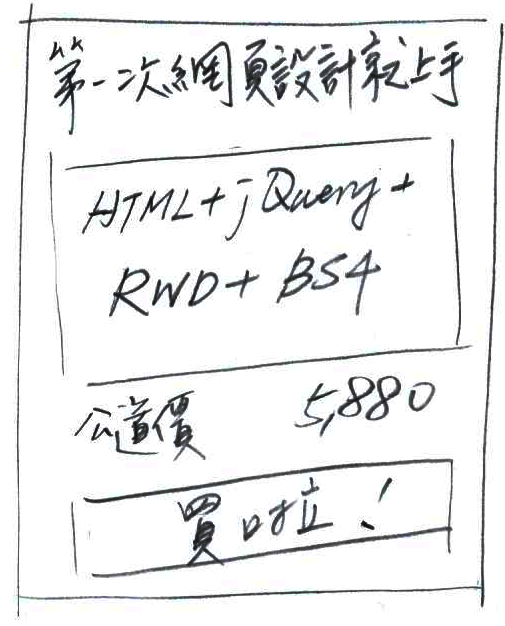 第一次網頁設計就上手
HTML+jQuery+
RWD+BS4
公道價 5,880
買啦!